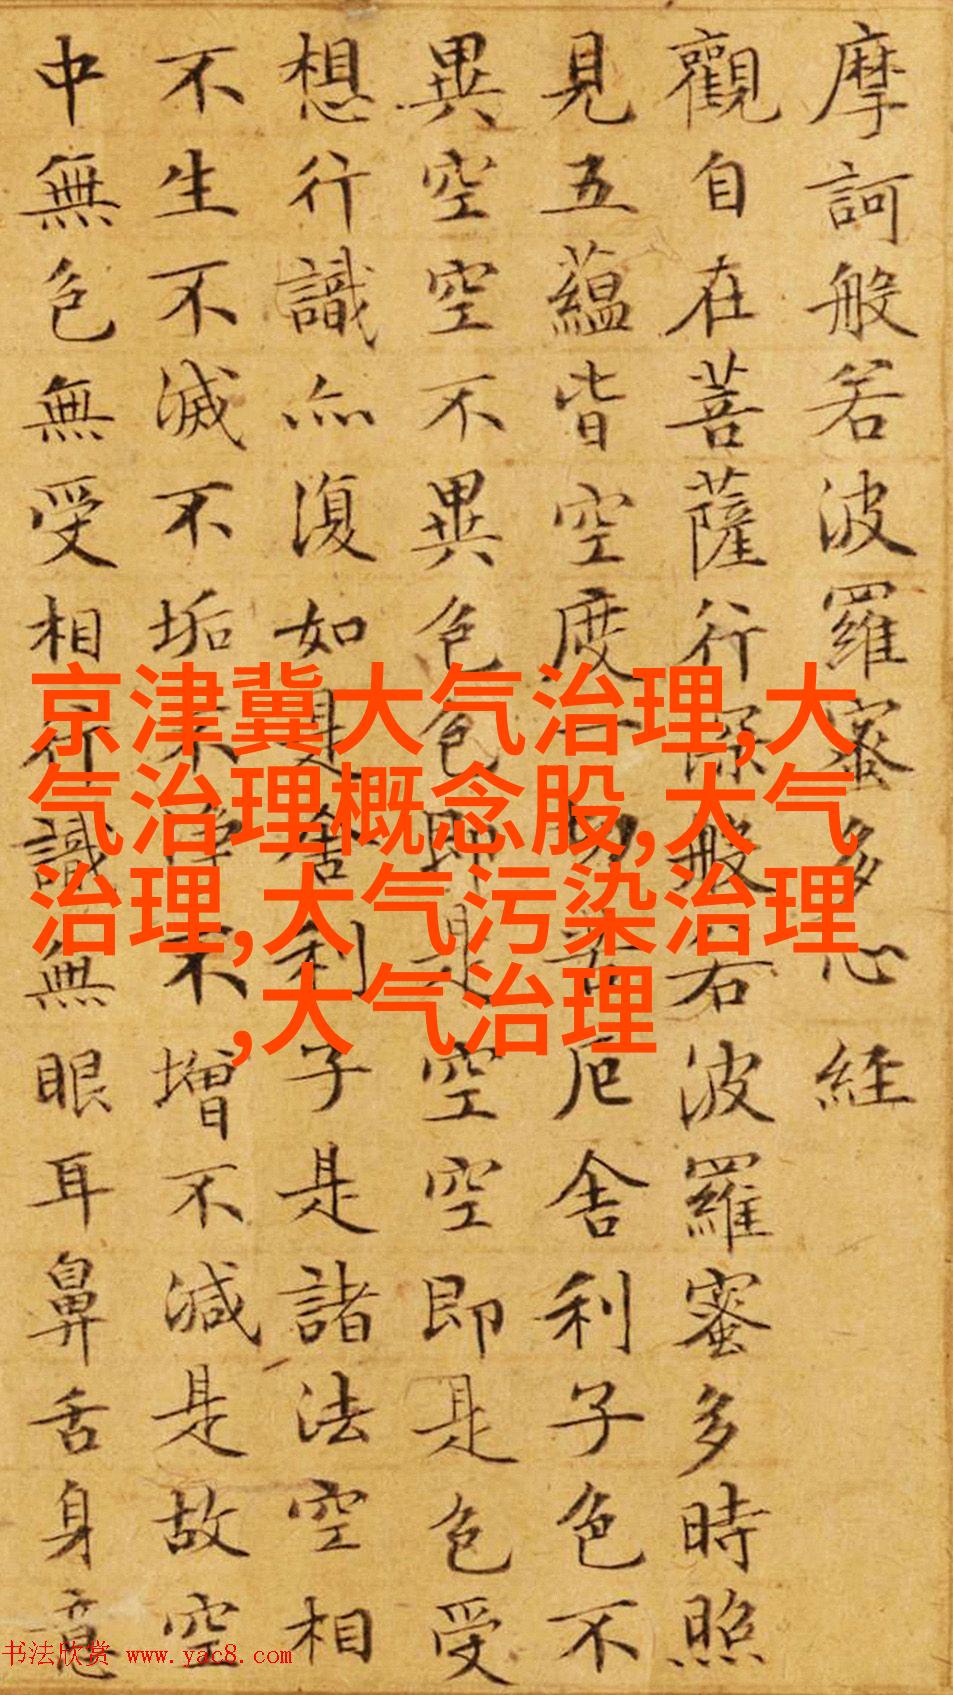 摩訶般若波羅蜜多心經
觀自在菩薩行深般若波羅蜜多時照
見五蘊皆空度一切苦厄舍利子色不
異空空不異色色即是空空即是色受
想行識亦復如是舍利子是諸法空相
不生不滅不垢不淨不增不減是故空
中無色無受相行識無眼耳鼻舌身意
京津冀大气治理,大
气治理概念股,大气
治理,大气污染治理
,大气治理
书法欣赏 www.yac8.com